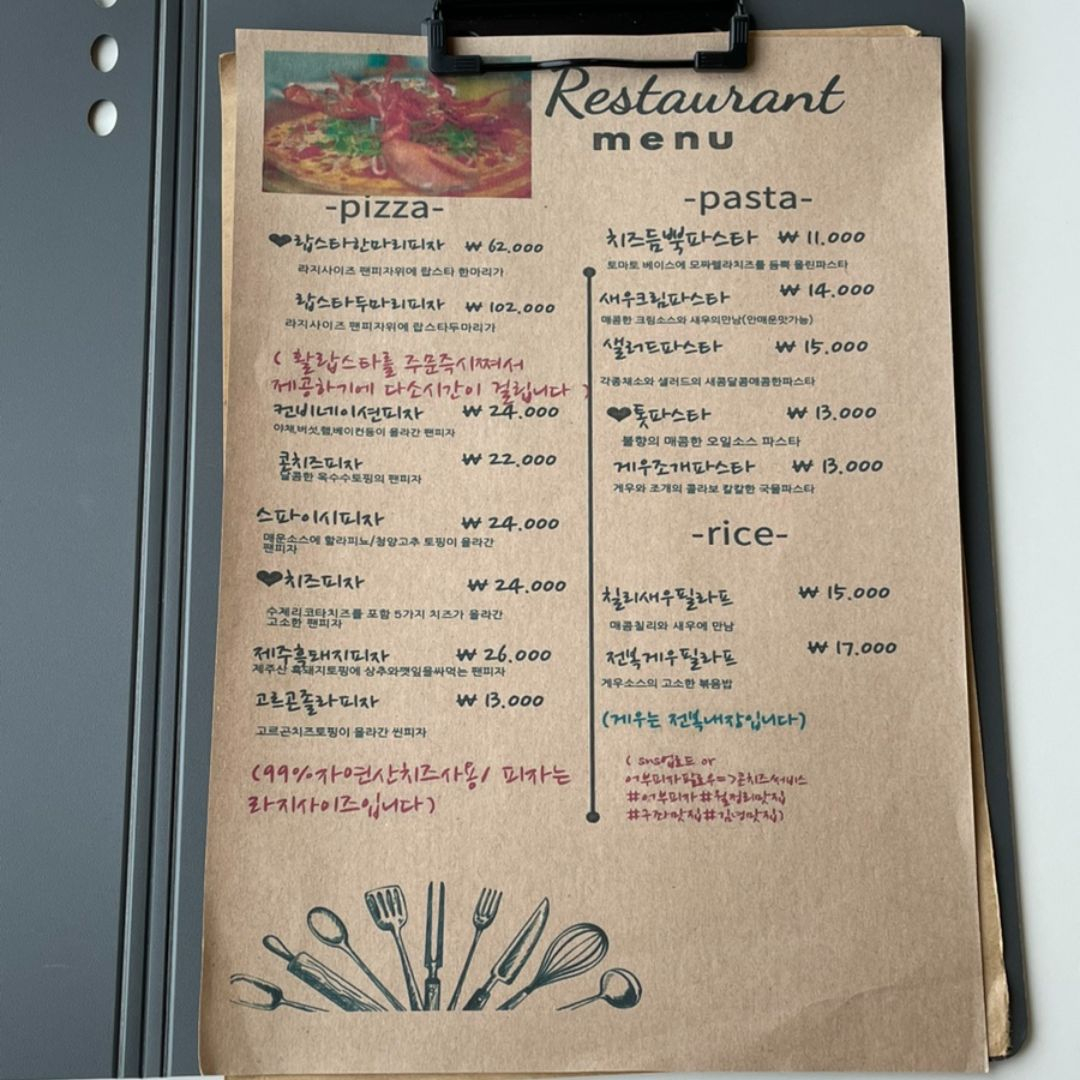 Restaurant
menu
-pizza-
❤랍스타한마리피자 ₩ 62.000
라지사이즈 팬피자위에 랍스타 한마리가
랍스타두마리피자 ₩ 102.000
라지사이즈 팬피자위에 랍스타두마리가
( 활랍스타를 주문즉시쪄서
제공하기에 다소시간이 걸립니다 )
컨비네이션피자 ₩ 24.000
야채,버섯,햄,베이컨등이 올라간 팬피자
콘치즈피자 ₩ 22.000
달콤한 옥수수토핑의 팬피자
스파이시피자 ₩ 24.000
매운소스에 할라피뇨/청양고추 토핑이 올라간
팬피자
❤치즈피자 ₩ 24.000
수제리코타치즈를 포함 5가지 치즈가 올라간
고소한 팬피자
제주흑돼지피자 ₩ 26.000
제주산 흑돼지토핑에 상추와깻잎을싸먹는 팬피자
고르곤졸라피자 ₩ 13.000
고르곤치즈토핑이 올라간 씬피자
(99%자연산치즈사용/ 피자는
라지사이즈입니다)
-pasta-
치즈듬뿍파스타 ₩ 11.000
토마토 베이스에 모짜렐라치즈를 듬뿍 올린파스타
새우크림파스타 ₩ 14.000
매콤한 크림소스와 새우의만남(안매운맛가능)
샐러드파스타 ₩ 15.000
각종채소와 샐러드의 새콤달콤매콤한파스타
❤톳파스타 ₩ 13.000
불향의 매콤한 오일소스 파스타
게우조개파스타 ₩ 13.000
게우와 조개의 콜라보 칼칼한 국물파스타
-rice-
칠리새우필라프 ₩ 15.000
매콤칠리와 새우에 만남
전복게우필라프 ₩ 17.000
게우소스의 고소한 볶음밥
(게우는 전복내장입니다)
( sns업로드 or
어부피자팔로우=>콘치즈서비스
#어부피자#월정리맛집
#구좌맛집#김녕맛집)